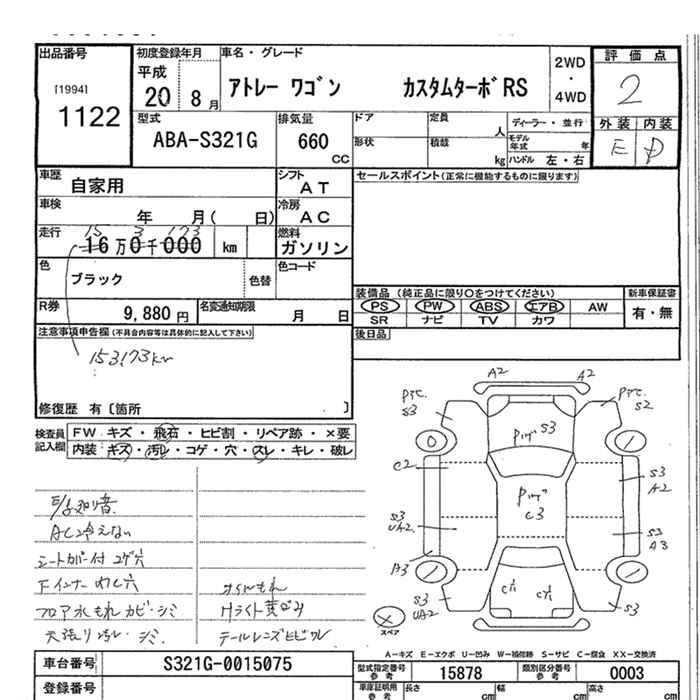 出品番号 初度登録年月 車名・グレード 2WD・4WD 評価点
[1994]
1122
平成
20 8月
アトレー ワゴン カスタムターボRS
2
型式 排気量 ドア 定員 人 ディーラー・並行 外装 内装
ABA-S321G 660 CC 形状 積載 kg モデル年式 年 ハンドル 左・右 E D
車歴 自家用 シフト AT セールスポイント(正常に機能するものに限ります)
車検 年 月( 日) 冷房 AC
走行 15 3 173
16万0千000 km 燃料 ガソリン
色 ブラック 色替 色コード
装備品 (純正品に限り○をつけてください) 新車保証書
PS PW ABS エアB AW 有・無
SR ナビ TV カワ
R券 9,880円 名変通知期限 月 日
後日品
注意事項申告欄(不具合内容等は具体的に記入して下さい)
153173km
修復歴 有〔箇所 〕
検査員記入欄 FW キズ・飛石・ヒビ割・リペア跡・×要
内装 キズ・汚レ・コゲ・穴・スレ・キレ・破レ
AC冷えない
シートカバー付 コゲ穴
Fインナーわれ穴
フロア水もれ カビ・シミ
天張り汚レ・シミ
Hライト黄ばみ
テールレンズヒビワレ
A2 A2
S3 S2
S3
C2 S3
A2
C3
S3
UA2 S3
A3
A3
S3
UA2 S3
スペア
A-キズ E-エクボ U-凹み W-補修跡 S-サビ C-腐食 XX-交換済
車台番号 S321G-0015075
型式指定番号 参考 15878 類別区分番号 参考 0003
登録番号
車庫証明用 参考 長さ cm 幅 cm 高さ cm